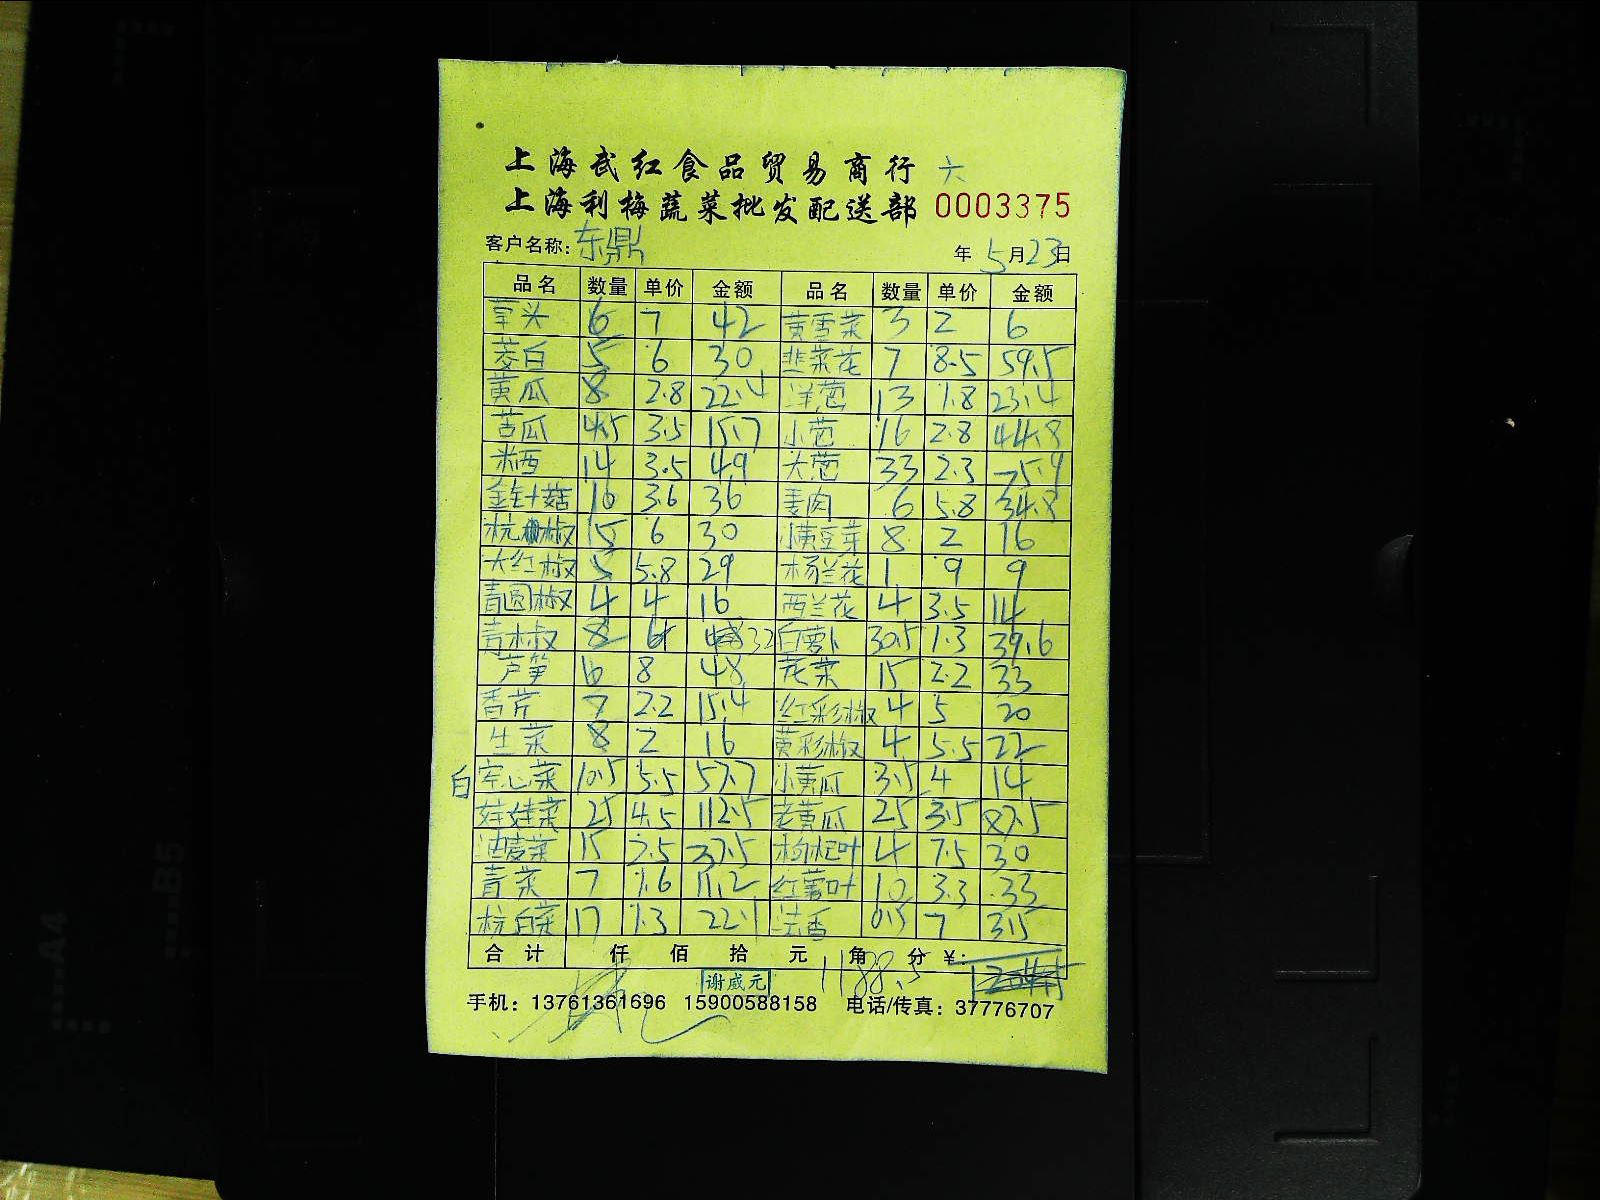 上海武红食品贸易商行 六
上海利梅蔬菜批发配送部 0003375
客户名称: 东鼎 年 5月23日
品名 数量 单价 金额 品名 数量 单价 金额
芋头 6 7 42 黄雪菜 3 2 6
茭白 5 6 30 韭菜花 7 8.5 59.5
黄瓜 8 2.8 22.4 洋葱 13 1.8 23.4
苦瓜 4.5 3.5 15.7 小葱 16 2.8 44.8
米西 14 3.5 49 大葱 33 2.3 75.9
金针菇 10 3.6 36 姜肉 6 5.8 34.8
杭椒 15 6 30 小黄豆芽 8 2 16
大红椒 5 5.8 29 杨兰花 1 9 9
青圆椒 4 4 16 西兰花 4 3.5 14
青木椒 8 32 白萝卜 30.5 1.3 39.6
芦笋 6 8 48 花菜 15 2.2 33
香芹 7 2.2 15.4 红彩椒 4 5 20
生菜 8 2 16 黄彩椒 4 5.5 22
白空心菜 10.5 5.5 57.7 小黄瓜 3.5 4 14
娃娃菜 25 4.5 112.5 老黄瓜 25 3.5 87.5
油麦菜 15 2.5 37.5 枸杞叶 4 7.5 30
青菜 7 1.6 11.2 红薯叶 10 3.3 33
杭白菜 17 1.3 22.1 法香 0.5 7 3.5
合计 仟 佰 拾 元 角 分 ¥:
谢威元 1188.5
手机: 13761361696 15900588158 电话/传真: 37776707